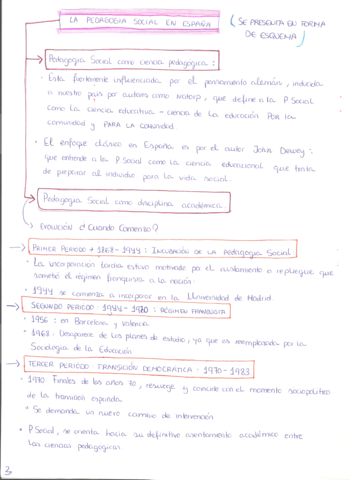 LA PEDAGOGIA SOCIAL EN ESPAÑA
(SE PRESENTA EN FORMA
DE ESQUEMA)
Pedagogia Social como ciencia pedagógica:
· Esta fuertemente influenciada por el pensamiento alemán, inducida
a nuestro pais por autores como Natorp, que define a la P Social
como la ciencia educativa - ciencia de la educación POR la
comunidad y PARA LA comunidad.
· El enfoque clásico en España es por el autor John Dewey:
que entiende a la P Social como la ciencia educacional que trata
de preparar al individuo para la vida social.
Pedagogia Social como disciplina académica.
Evolución ¿Cuando Comenzo?
PRIMER PERIODO + 1868 - 1944: INCUBACIÓN DE LA Pedagogia Social
· La incorporación tardia estuvo motivada por el aislamiento o repliegue que
sometió el régimen franquista a la nación.
· 1944 se comienza a incorporar en la Universidad de Madrid.
SEGUNDO PERIODO: 1944 - 1970: RÉGIMEN FRANQUISTA
· 1956: en Barcelona y Valencia.
· 1968: Desaparece de los planes de estudio, ya que es reemplazada por la
Sociologia de la Educación
TERCER PERIODO: TRANSICIÓN DEMOCRÁTICA: 1970 - 1983
· 1970 Finales de los años 70, resurge y coincide con el momento sociopolitico
de la transición española
* Se demanda un nuevo camino de intervención
· P Social, se orienta hacia su definitivo asentamiento académico entre
las ciencias pedagógicas
3